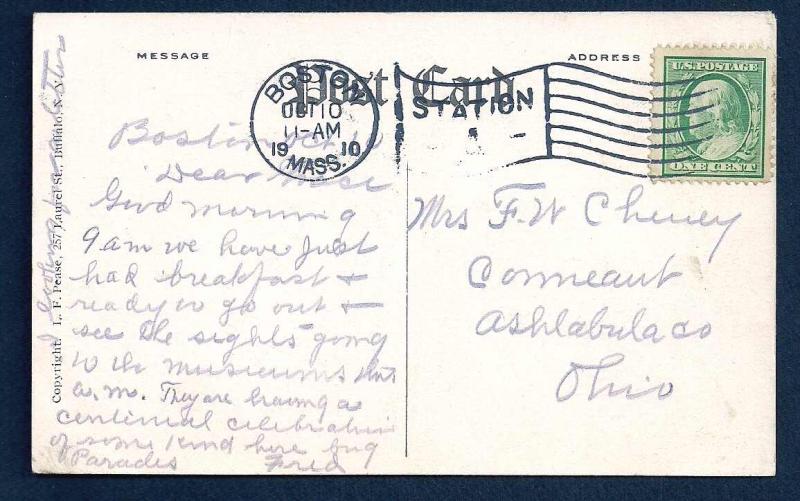 MESSAGE
Post Card
ADDRESS
U.S. POSTAGE
ONE CENT
BOSTON
OCT 10
11-AM
19 10
MASS.
STATION
1
Boston Oct 10
Dear
Good morning
9 am we have just
had breakfast +
ready to go out +
see the sights going
to the museums this
a.m. They are having a
centinial celebration
of some kind here big
Parades Fred
Mrs F. W. Cheney
Conneaut
Ashtabula co
Ohio
Copyright. L. F. Pease, 257 Laurel St., Buffalo, N. Y.